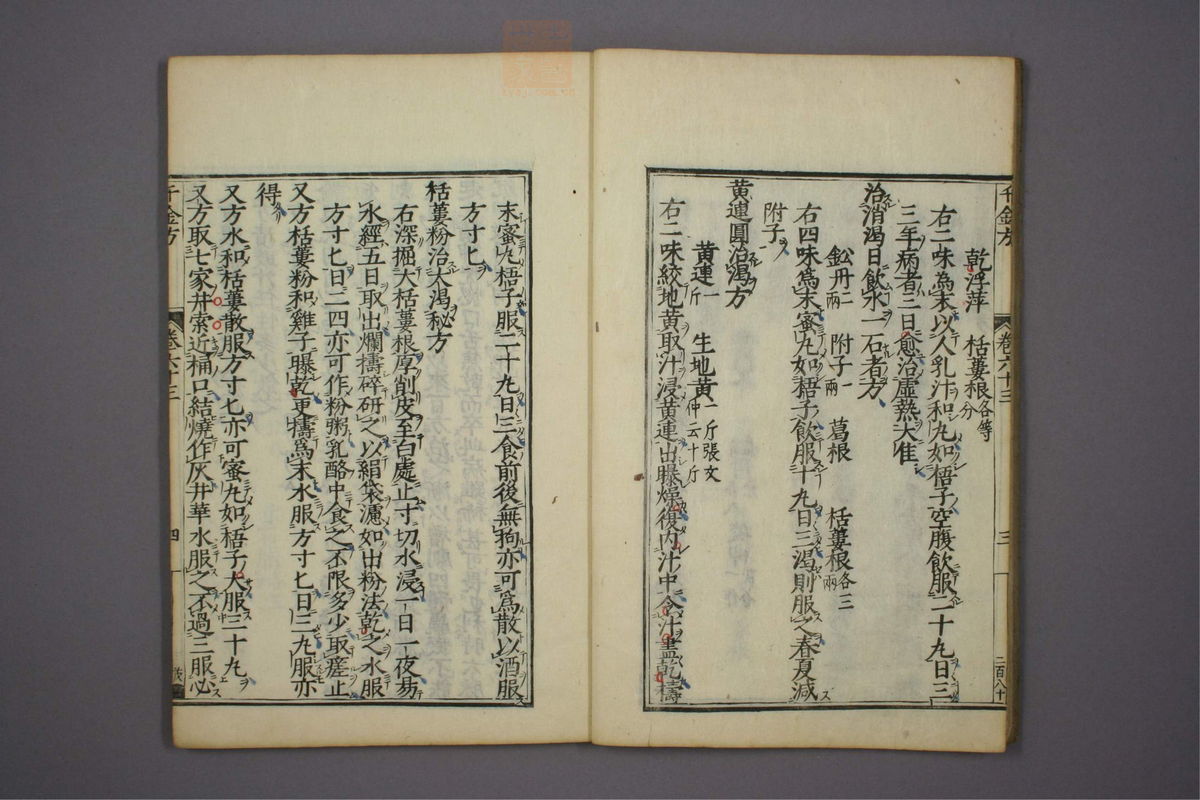 千金方 卷六十三 三 二百八十
乾浮萍 栝蔞根各等分
右二味為末以人乳汁和丸如梧子空腹飲服二十九日三
三年病者三日愈治虛熱大佳
治消渴日飲水一石者方
鈆丹二兩 附子一兩 葛根 栝蔞根各三兩
右四味為末蜜丸如梧子飲服十丸日三渴則服之春夏減
附子
黃連圓治渴方
黃連一斤 生地黃一斤張文仲云十斤
右二味絞地黃取汁浸黃連出曝燥復內汁中令汁盡乾擣
末蜜丸梧子服二十九日三食前後無拘亦可為散以酒服
方寸匕
栝蔞粉治大渴秘方
右深掘大栝蔞根厚削皮至白處止寸切水浸一日一夜易
水經五日取出爛擣碎研之以絹袋濾如出粉法乾之水服
方寸匕日三四亦可作粉粥乳酪中食之不限多少取瘥止
又方栝蔞粉和雞子曝乾更擣為末水服方寸匕日三丸服亦
得
又方水和栝蔞散服方寸匕亦可蜜丸如梧子大服三十九
又方取七家井索近桶口結燒作灰井華水服之不過三服必
千金方 卷六十三 四